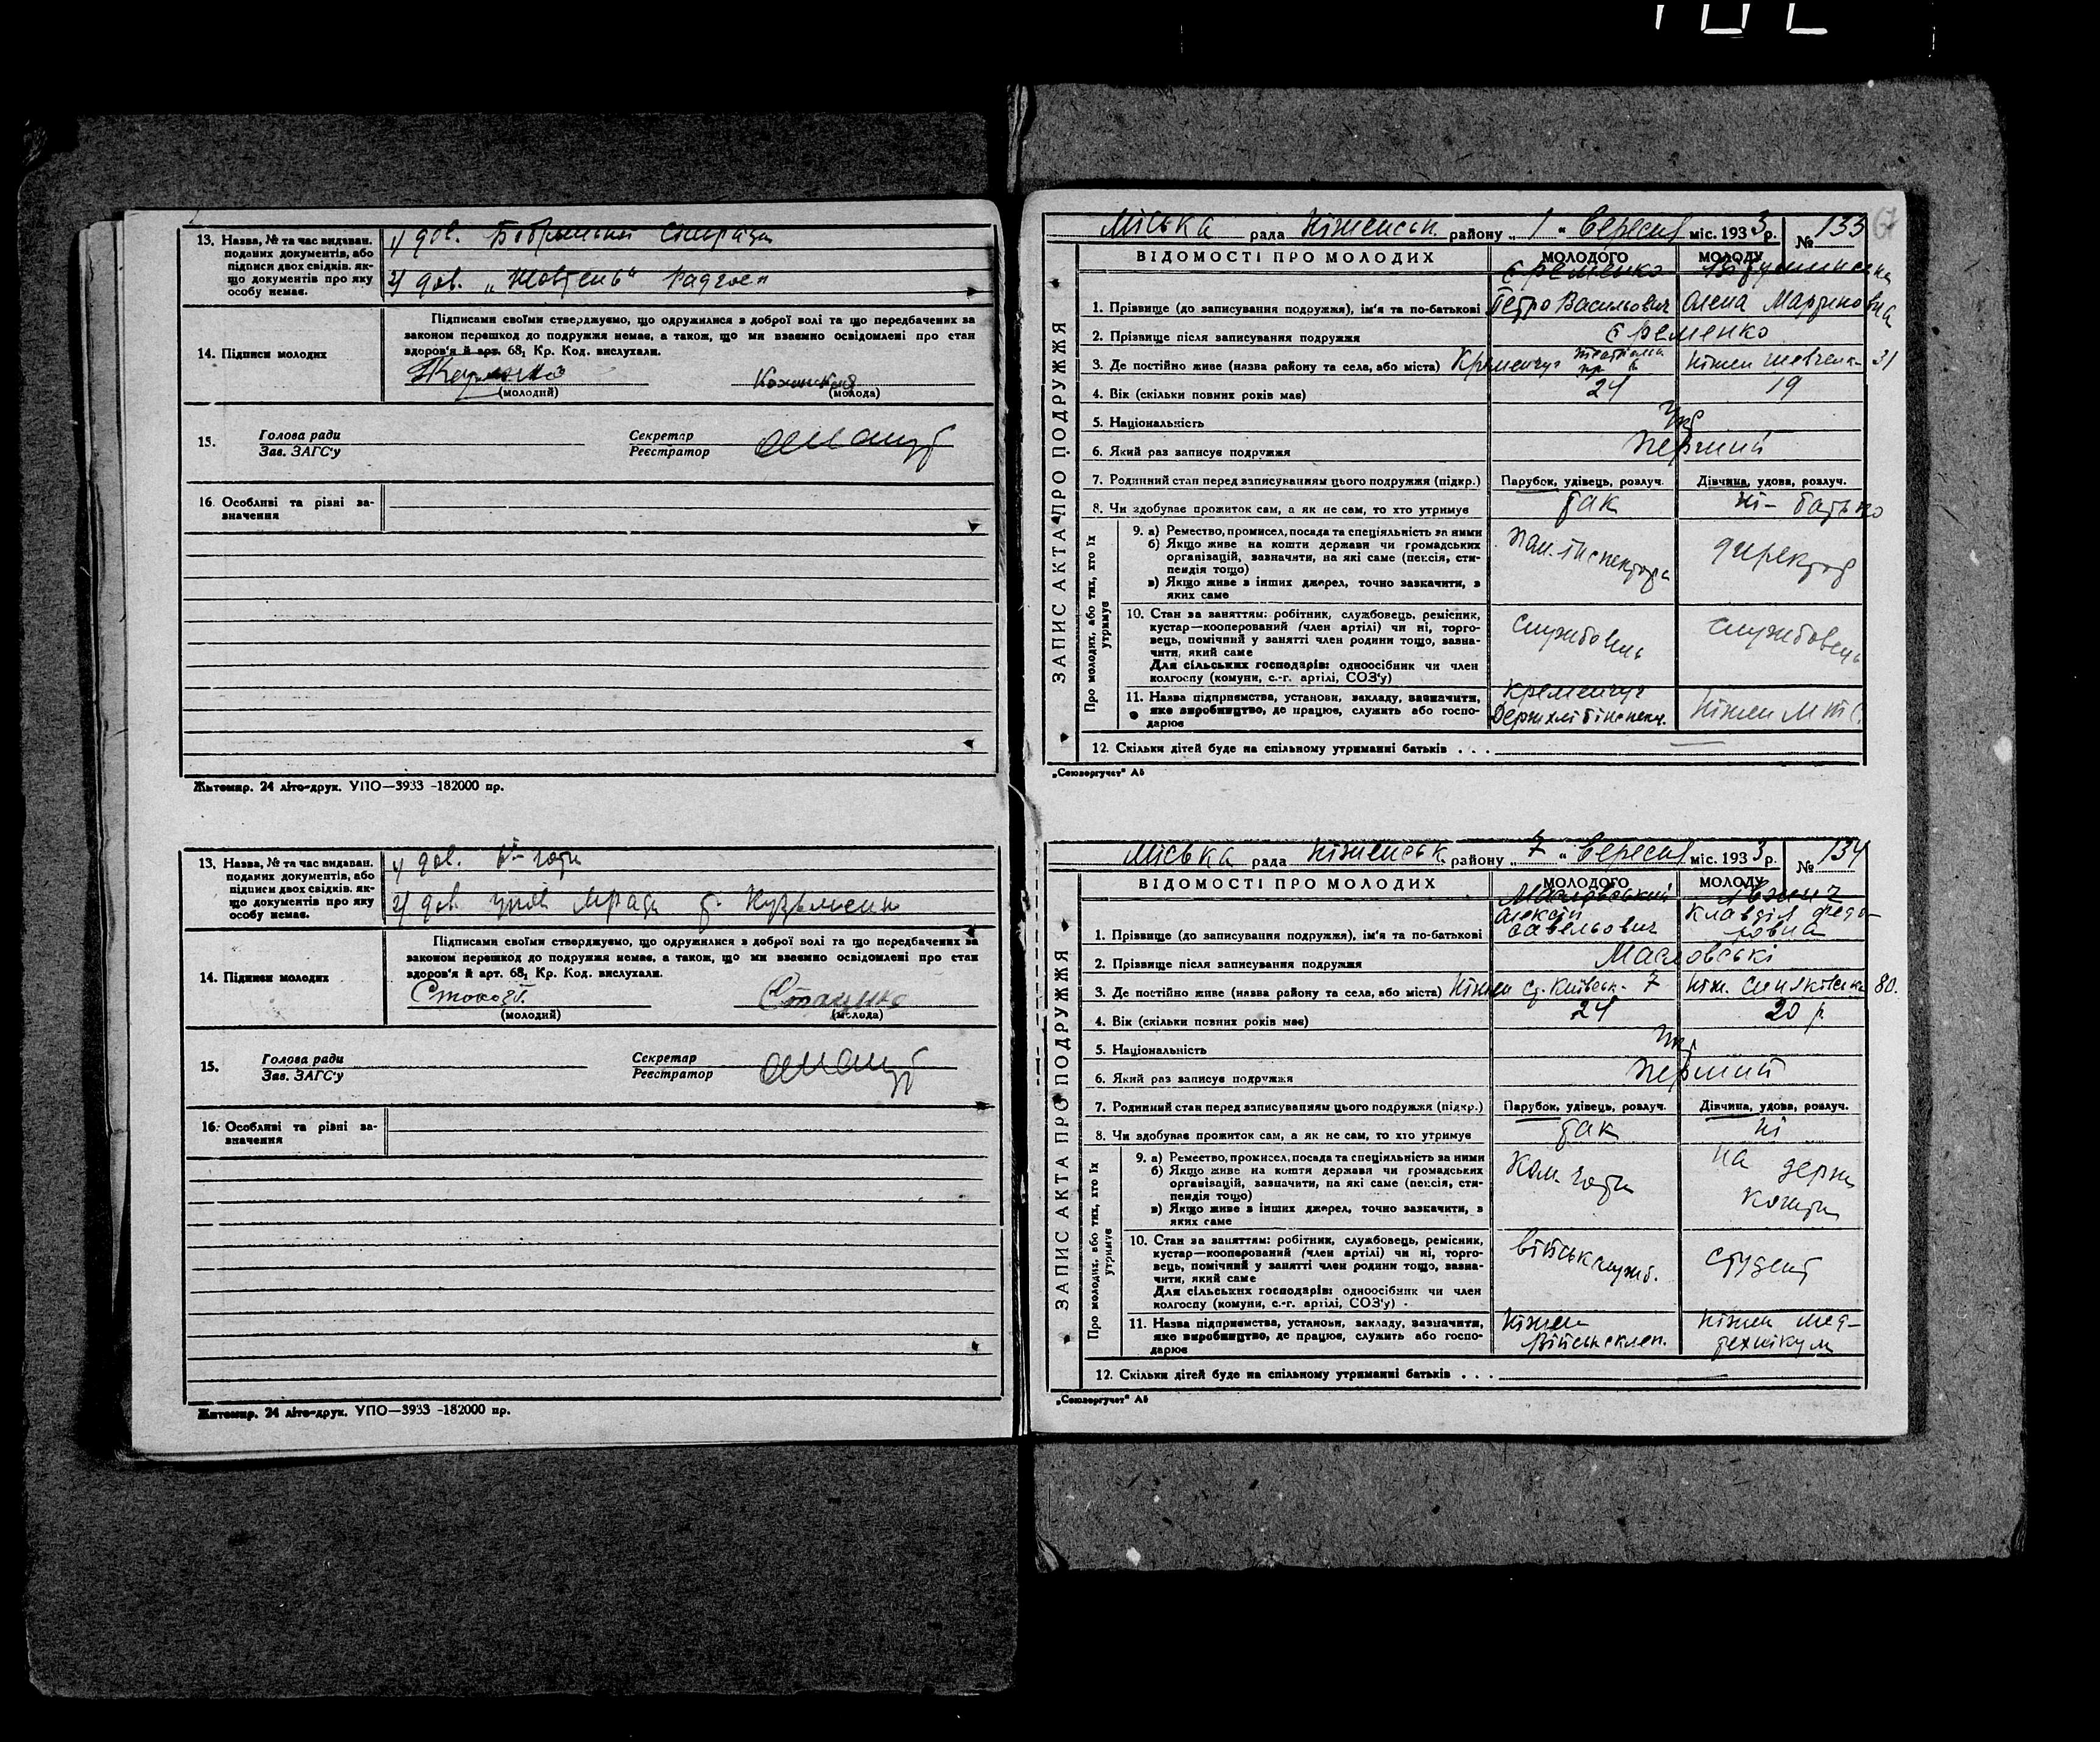 13. Назва, № та час видаван. поданих документів, або підписи двох свідків, якщо документів про яку особу немає.
1) дов.
2) дов. „Жовтень“
Підписами своїми стверджуємо, що одружилися з доброї волі та що передбачених за
законом перешкод до подружжя немає, а також, що ми взаємно освідомлені про стан
здоров'я й арт. 68, Кр. Код. вислухали.
14. Підписи молодих
(молодий) (молода)
15. Голова ради Секретар
Зав. ЗАГС'у Реєстратор
16. Особливі та різні зазначення
Житомир. 24 літо-друк. УПО—3933 -182000 пр.
13. Назва, № та час видаван. поданих документів, або підписи двох свідків, якщо документів про яку особу немає.
1) дов.
2) дов.
Підписами своїми стверджуємо, що одружилися з доброї волі та що передбачених за
законом перешкод до подружжя немає, а також, що ми взаємно освідомлені про стан
здоров'я й арт. 68, Кр. Код. вислухали.
14. Підписи молодих
(молодий) (молода)
15. Голова ради Секретар
Зав. ЗАГС'у Реєстратор
16. Особливі та різні зазначення
Житомир. 24 літо-друк. УПО—3933 -182000 пр.
ЗАПИС АКТА ПРО ПОДРУЖЖЯ
Міська рада Ніженськ району „ 1 “ Вересня міс. 1933 р. № 133
ВІДОМОСТІ ПРО МОЛОДИХ МОЛОДОГО МОЛОДУ
Єременко
1. Прізвище (до записування подружжя), ім'я та по-батькові Петро Васильович Олена Мартиновна
2. Прізвище після записування подружжя Єременко
3. Де постійно живе (назва району та села, або міста) Кременчуг Ніжен Шевченк. 31
4. Вік (скільки повних років має) 24 19
5. Національність Укр
6. Який раз записує подружжя Перший
7. Родинний стан перед записуванням цього подружжя (підкр.) Парубок, удівець, розлуч. Дівчина, удова, розлуч.
8. Чи здобуває прожиток сам, а як не сам, то хто утримує так ні – батько
Про молодих, або тих, хто їх утримує
9. а) Ремество, промисел, посада та спеціяльність за ними
б) Якщо живе на кошти держави чи громадських
організацій, зазначити, на які саме (пенсія, стипендія тощо)
в) Якщо живе в інших джерел, точно зазначити, в
яких саме
Пом. інспектора директор
10. Стан за заняттям: робітник, службовець, ремісник,
кустар—кооперований (член артілі) чи ні, торговець, помічний у занятті член родини тощо, зазначити, який саме
Для сільських господарів: одноосібник чи член
колгоспу (комуни, с.-г. артілі, СОЗ'у)
службовець службовець
11. Назва підприємства, установи, закладу, зазначити,
яке виробництво, де працює, служить або господарює
Кременчуг Держхлібінспекц. Ніжен МТС.
12. Скільки дітей буде на спільному утриманні батьків . . . —
„Союзоргучет“ А5
ЗАПИС АКТА ПРО ПОДРУЖЖЯ
Міська рада Ніженськ району „ 7 “ Вересня міс. 1933 р. № 134
ВІДОМОСТІ ПРО МОЛОДИХ МОЛОДОГО МОЛОДУ
Масловський
1. Прізвище (до записування подружжя), ім'я та по-батькові Олексій Савельович Клавдія Федоровна
2. Прізвище після записування подружжя Масловські
3. Де постійно живе (назва району та села, або міста) Ніжен Ст. Київськ. 7 Ніж. Синяківська 80.
4. Вік (скільки повних років має) 24 20 р
5. Національність Укр
6. Який раз записує подружжя Перший
7. Родинний стан перед записуванням цього подружжя (підкр.) Парубок, удівець, розлуч. Дівчина, удова, розлуч.
8. Чи здобуває прожиток сам, а як не сам, то хто утримує так ні
Про молодих, або тих, хто їх утримує
9. а) Ремество, промисел, посада та спеціяльність за ними
б) Якщо живе на кошти держави чи громадських
організацій, зазначити, на які саме (пенсія, стипендія тощо)
в) Якщо живе в інших джерел, точно зазначити, в
яких саме
Ком. роти на держ кошти
10. Стан за заняттям: робітник, службовець, ремісник,
кустар—кооперований (член артілі) чи ні, торговець, помічний у занятті член родини тощо, зазначити, який саме
Для сільських господарів: одноосібник чи член
колгоспу (комуни, с.-г. артілі, СОЗ'у)
військслужб. студент
11. Назва підприємства, установи, закладу, зазначити,
яке виробництво, де працює, служить або господарює
Ніжен Ніжен мед-технікум
12. Скільки дітей буде на спільному утриманні батьків . . . —
„Союзоргучет“ А5